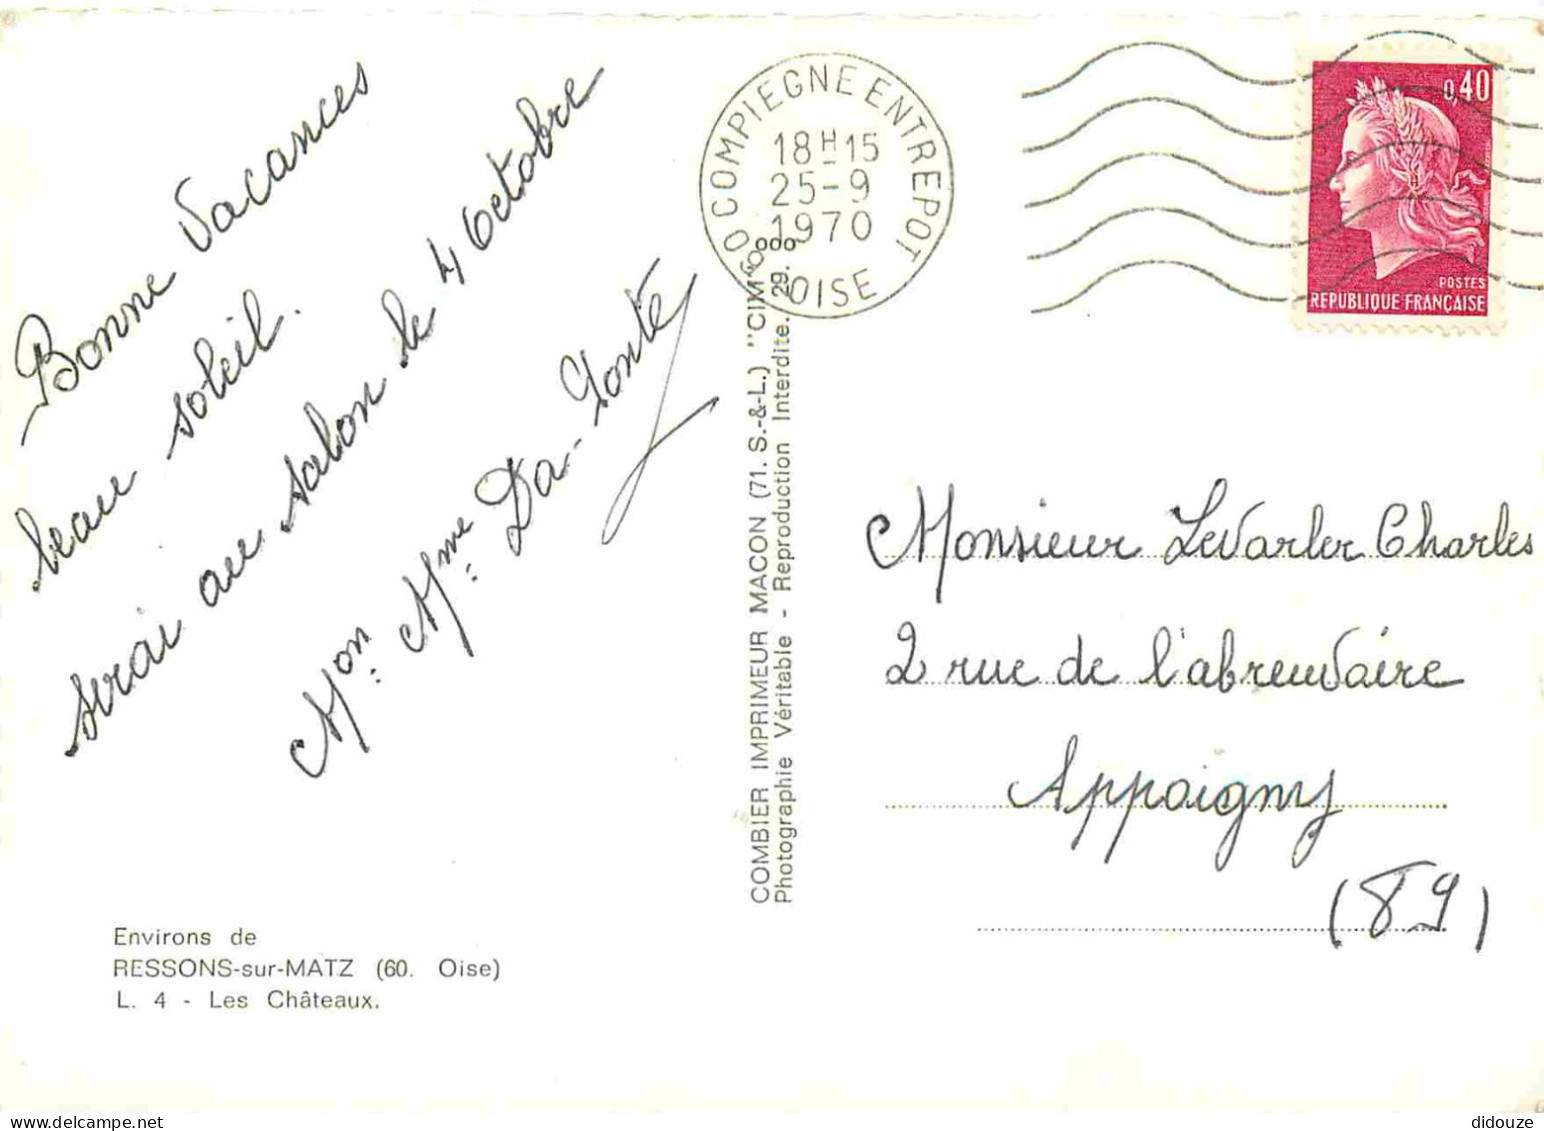 Bonne Vacances
beau soleil.
serai au salon le 4 Octobre
Mon: Mme: Da-Fonte
Environs de
RESSONS-sur-MATZ (60. Oise)
L. 4 - Les Châteaux.
COMBIER IMPRIMEUR MACON (71. S.-&-L.) "CIM"
Photographie Véritable - Reproduction Interdite. 29.
60 COMPIEGNE ENTREPOT
18H15
25-9
1970
OISE
0,40
POSTES
REPUBLIQUE FRANÇAISE
Monsieur LeVarler Charles
2 rue de l'abreuvaire
Appoigny
(89)
didouze